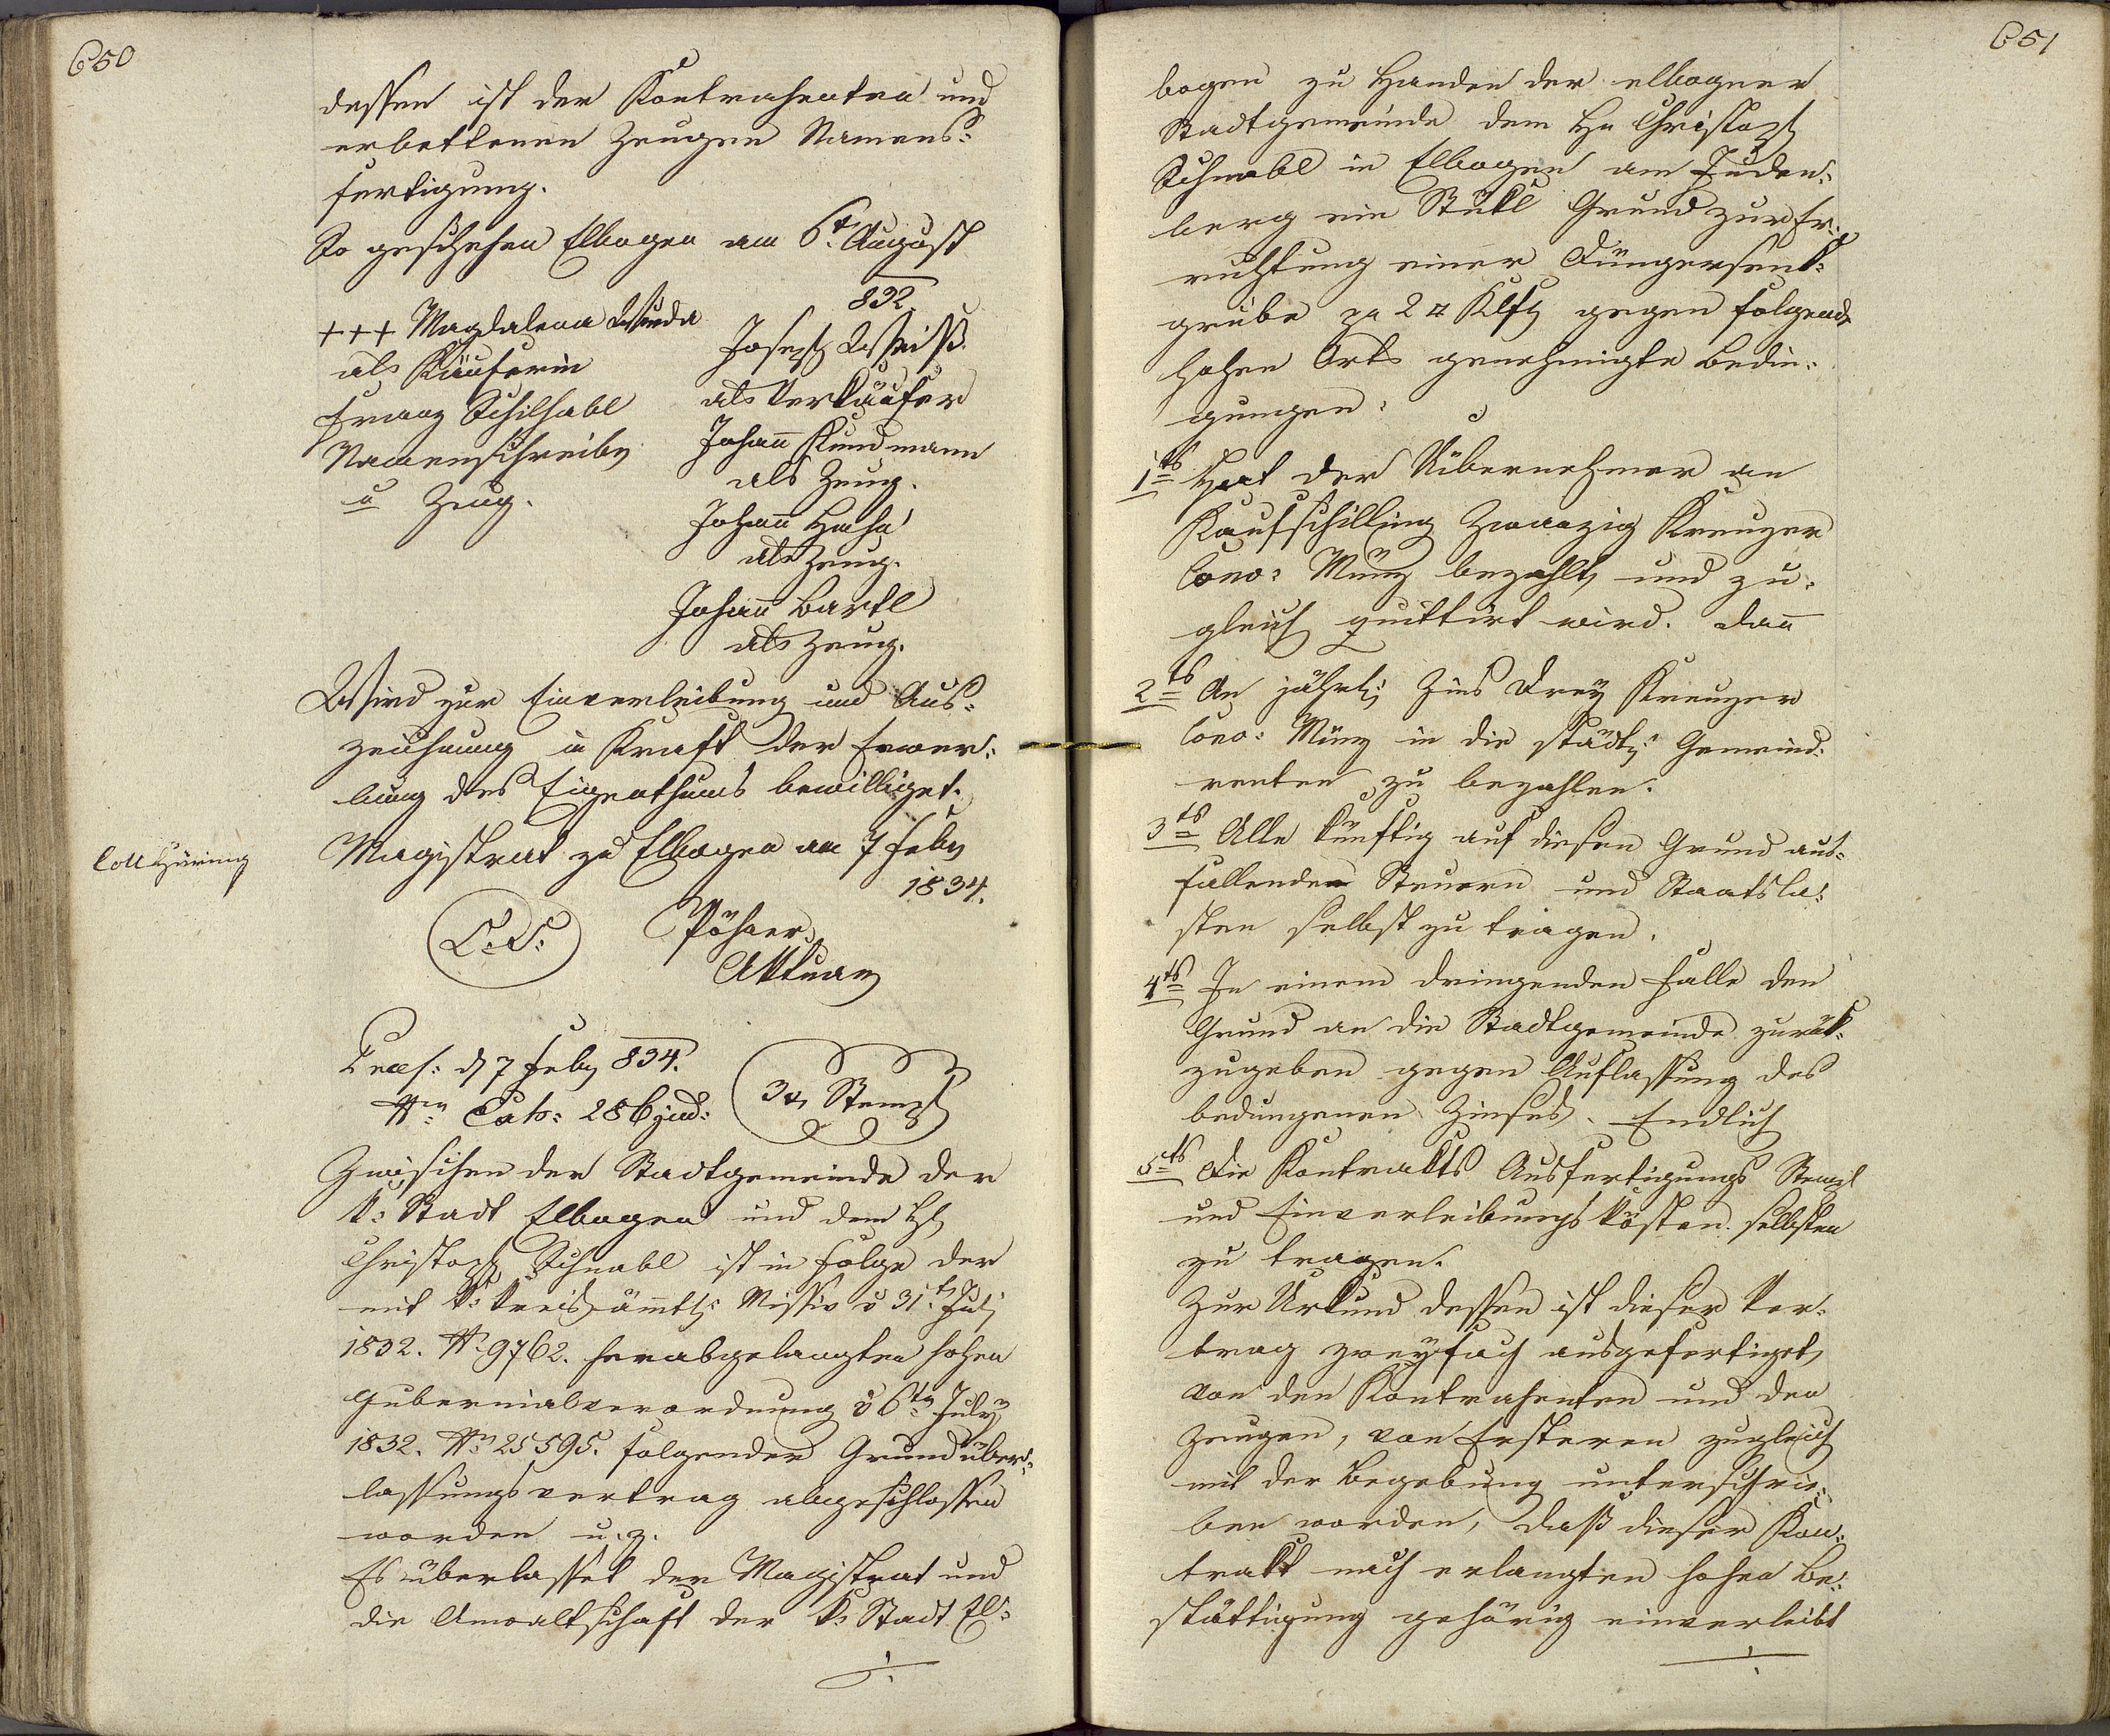 650
dessen ist der Kontrahenten und
erbettenen Zeugen Namens-
fertigung.
So geschehen Elbogen am 6t August
832.
+++ Magdalena Wunda
als Käuferin
Franz Schilhabl
Namenschreiber
u Zeug.
Joseph Weiß
als Verkäufer
Johañ Kundmann
als Zeug.
Johañ Hacha
als Zeug.
Johañ Bartl
als Zeug.
Wird zur Einverleibung und Aus-
zeichnung in Kraft der Erwer-
bung des Eigenthums bewilliget.
Magistrat zu Elbogen am 7 Feber
1834.
Coll Häring
L. S.
Pöhner
Aktuar
Praes: d 7 Feber 834.
Nro Cats: 286 jud:
3 xr Stempl
Zwischen der Stadtgemeinde der
k: Stadt Elbogen und dem H
Christoph Schnabl ist in Folge der
mit k: kreisämtl: Missiv v 31t July
1832. No 9762. herabgelangten hohen
Gubernialverordnung v 6ten July
1832. No 25595. folgender Grundüber-
lassungsvertrag abgeschlossen
worden u. z.
Es überlasset der Magistrat und
die Anwaltschaft der k: Stadt El-
./.
651
bogen zu Handen der elbogner
Stadtgemeinde dem Hn Christoph
Schnabl in Elbogen am Juden-
berg ein Stükl Grund zur Er-
richtung einer Düngersenk-
grube pr 2 □ Klft gegen folgende
hohen Orts genehmigte Bedin-
gungen:
1tens Hat der Übernehmer an
Kaufschilling Zwanzig Kreuzer
Conv: Münz bezahlt, und zu-
gleich quittirt wird. Dañ
2tens An jährl: Zins Drey Kreuzer
Conv: Münz in die städt: Gemeind-
renten zu bezahlen.
3tens Alle künftig auf diesen Grund aus-
fallenden Steuern und Staatsla-
sten selbst zu tragen.
4tens In einem dringenden Falle den
Grund an die Stadtgemeinde zurük-
zugeben gegen Auflassung des
bedungenen Zinses. Endlich
5tens Die Kontrakts Ausfertigungs Stempl
und Einverleibungskösten selbsten
zu tragen.
Zur Urkund dessen ist dieser Ver-
trag zweyfach ausgefertiget,
von den Kontrahenten und den
Zeugen, von Ersteren zugleich
mit der Begebung unterschrie-
ben worden, daß dieser Kon-
trakt nach erlangten hohen Be-
stättigung gehörig einverleibt
./.